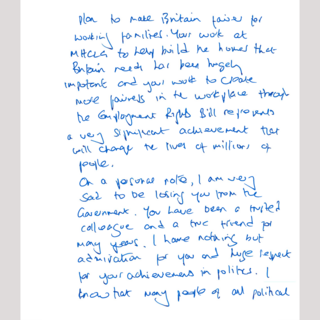 Plan to make Britain fairer for
working families. Your work at
MHCLG to help build the homes that
Britain needs has been hugely
important and your work to create
more fairness in the workplace through
the Employment Rights Bill represents
a very significant achievement that
will change the lives of millions of
people.
On a personal note, I am very
sad to be losing you from the
Government. You have been a trusted
colleague and a true friend for
many years. I have nothing but
admiration for you and huge respect
for your achievements in politics. I
know that many people of all political